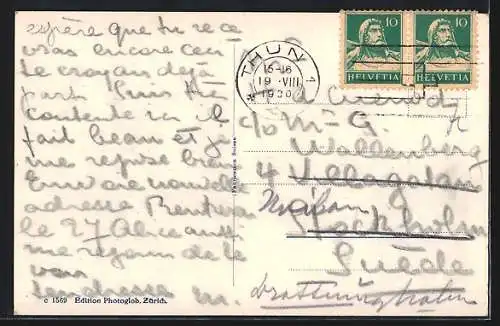 espère que tu rece
vras encore ceci
te croyant déjà
parti. Suis très
contente ici il
fait beau et je
me repose bien
Envoie nouvelle
adresse Rentrerai
le 27 Alice aussi
me réjouis de te
voir
tendresse m.
c 1569 Edition Photoglob, Zürich.
THUN 1
15-16
19. VIII
1930
10 10
HELVETIA HELVETIA
c/o Mr G.
Wallenberg
4 Villagatan
Stockholm
Suède
Drottningholm